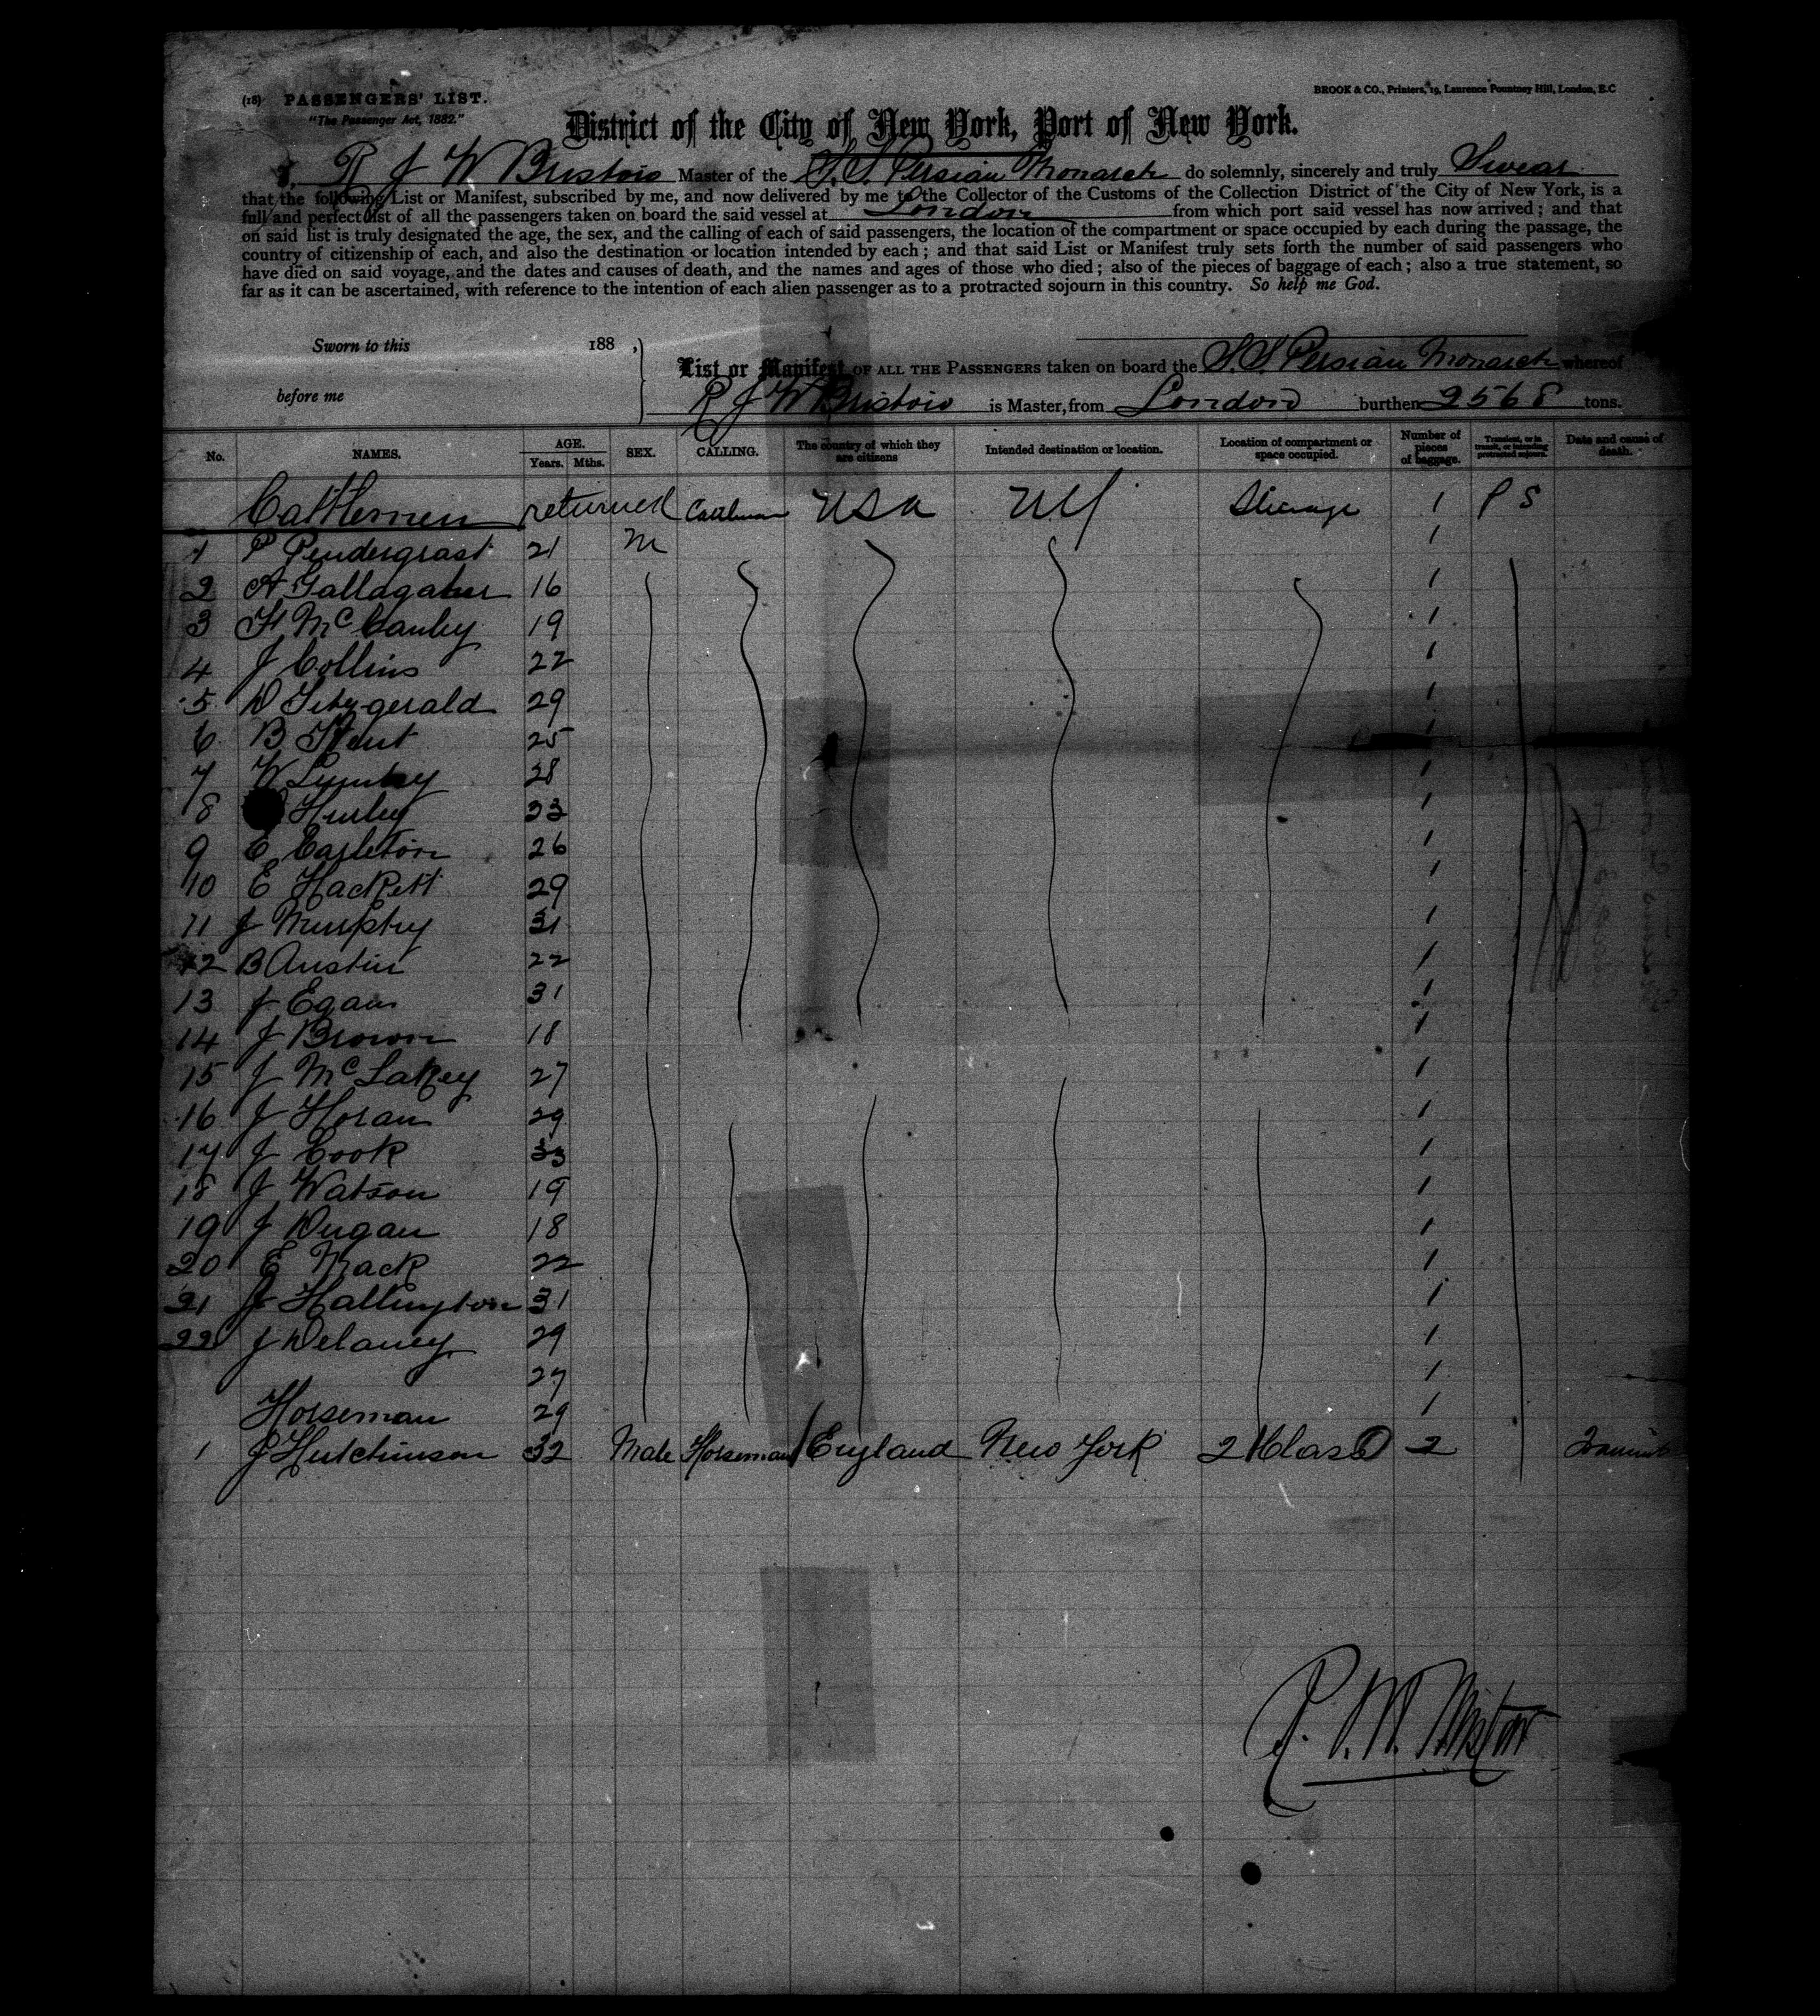 (18) PASSENGERS' LIST.
BROOK & CO., Printers, 19, Laurence Pountney Hill, London, E.C
"The Passenger Act, 1882."
District of the City of New York, Port of New York.
I, R J W Bristow Master of the S.S. Persian Monarch do solemnly, sincerely and truly Swear
that the following List or Manifest, subscribed by me, and now delivered by me to the Collector of the Customs of the Collection District of the City of New York, is a
full and perfect list of all the passengers taken on board the said vessel at London from which port said vessel has now arrived; and that
on said list is truly designated the age, the sex, and the calling of each of said passengers, the location of the compartment or space occupied by each during the passage, the
country of citizenship of each, and also the destination or location intended by each; and that said List or Manifest truly sets forth the number of said passengers who
have died on said voyage, and the dates and causes of death, and the names and ages of those who died; also of the pieces of baggage of each; also a true statement, so
far as it can be ascertained, with reference to the intention of each alien passenger as to a protracted sojourn in this country. So help me God.
Sworn to this 188 ,
List or Manifest OF ALL THE PASSENGERS taken on board the S.S. Persian Monarch whereof
before me
R J W Bristow is Master, from London burthen 2568 tons.
No. NAMES. AGE. Years. Mths. SEX. CALLING. The country of which they are citizens Intended destination or location. Location of compartment or space occupied. Number of pieces of baggage. Transient, or in transit, or intending protracted sojourn. Date and cause of death.
Cattlemen returned Cattleman USA NY Steerage 1 P S
1 P Pendergrast 21 M 1
2 A Gallagaher 16 1
3 H McCauley 19 1
4 J Collins 22 1
5 D Fitzgerald 29 1
6 B Kent 25 1
7 W Lumley 28 1
8 Hurley 33 1
9 E Carleton 26 1
10 E Hackett 29 1
11 J Murphy 31 1
12 B Austin 22 1
13 J Egan 31 1
14 J Brown 18 1
15 J McLakey 27 1
16 J Horan 29 1
17 J Cook 33 1
18 J Watson 19 1
19 J Dugan 18 1
20 E Mack 22 1
21 J Hallington 31 1
22 J Delaney 29 1
27 1
Horseman 29 1
1 J Hutchinson 32 Male Horseman England New York 2 Class 2